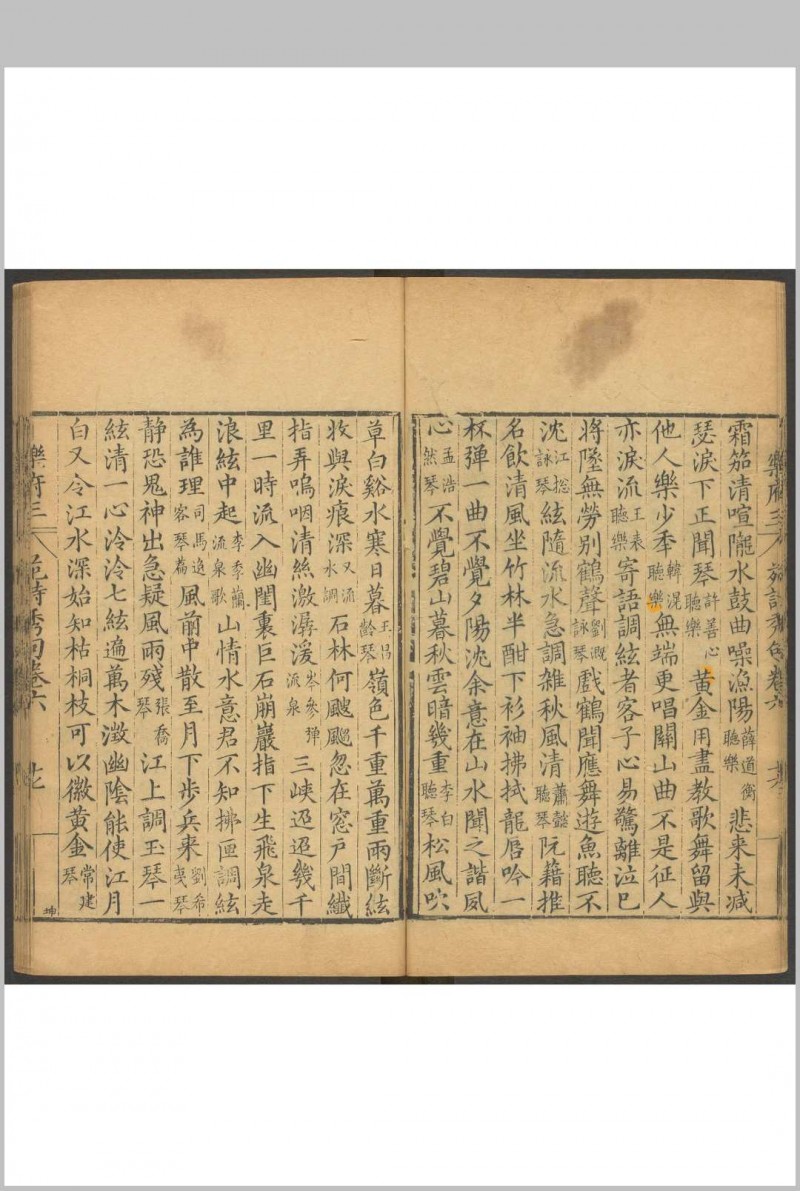 霜笳清喧隴水鼓曲噪漁陽薛道衡聽樂悲来未减
瑟淚下正聞琴許善心聽樂黃金用盡教歌舞留與
他人樂少年韓滉聽樂無端更唱關山曲不是征人
亦淚流王表聽樂寄語調絃者客子心易驚離泣已
將墜無勞別鶴聲劉溉詠琴戲鶴聞應舞遊魚聽不
沈江総詠琴絃隨流水急調雑秋風清蕭懿聽琴阮籍推
名飲清風坐竹林半酣下衫袖拂拭龍唇吟一
杯彈一曲不覺夕陽沈余意在山水聞之諧夙
心孟浩然琴不覺碧山暮秋雲暗幾重李白聽琴松風吹
草白谿水寒日暮王昌齡琴嶺色千重萬重雨斷絃
收與淚痕深又流水調石林何颼飀忽在窓戶間纖
指弄嗚咽清絲激潺湲岑參彈流泉三峽迢迢幾千
里一時流入幽閨裏巨石崩巖指下生飛泉走
浪絃中起李季蘭流泉歌山情水意君不知拂匣調絃
為誰理司馬逸客琴篇風前中散至月下步兵来劉希夷琴
静恐鬼神出急疑風雨殘張喬琴江上調玉琴一
絃清一心泠泠七絃遍萬木澂幽陰能使江月
白又令江水深始知枯桐枝可以徽黃金常建琴
樂府三
卷六